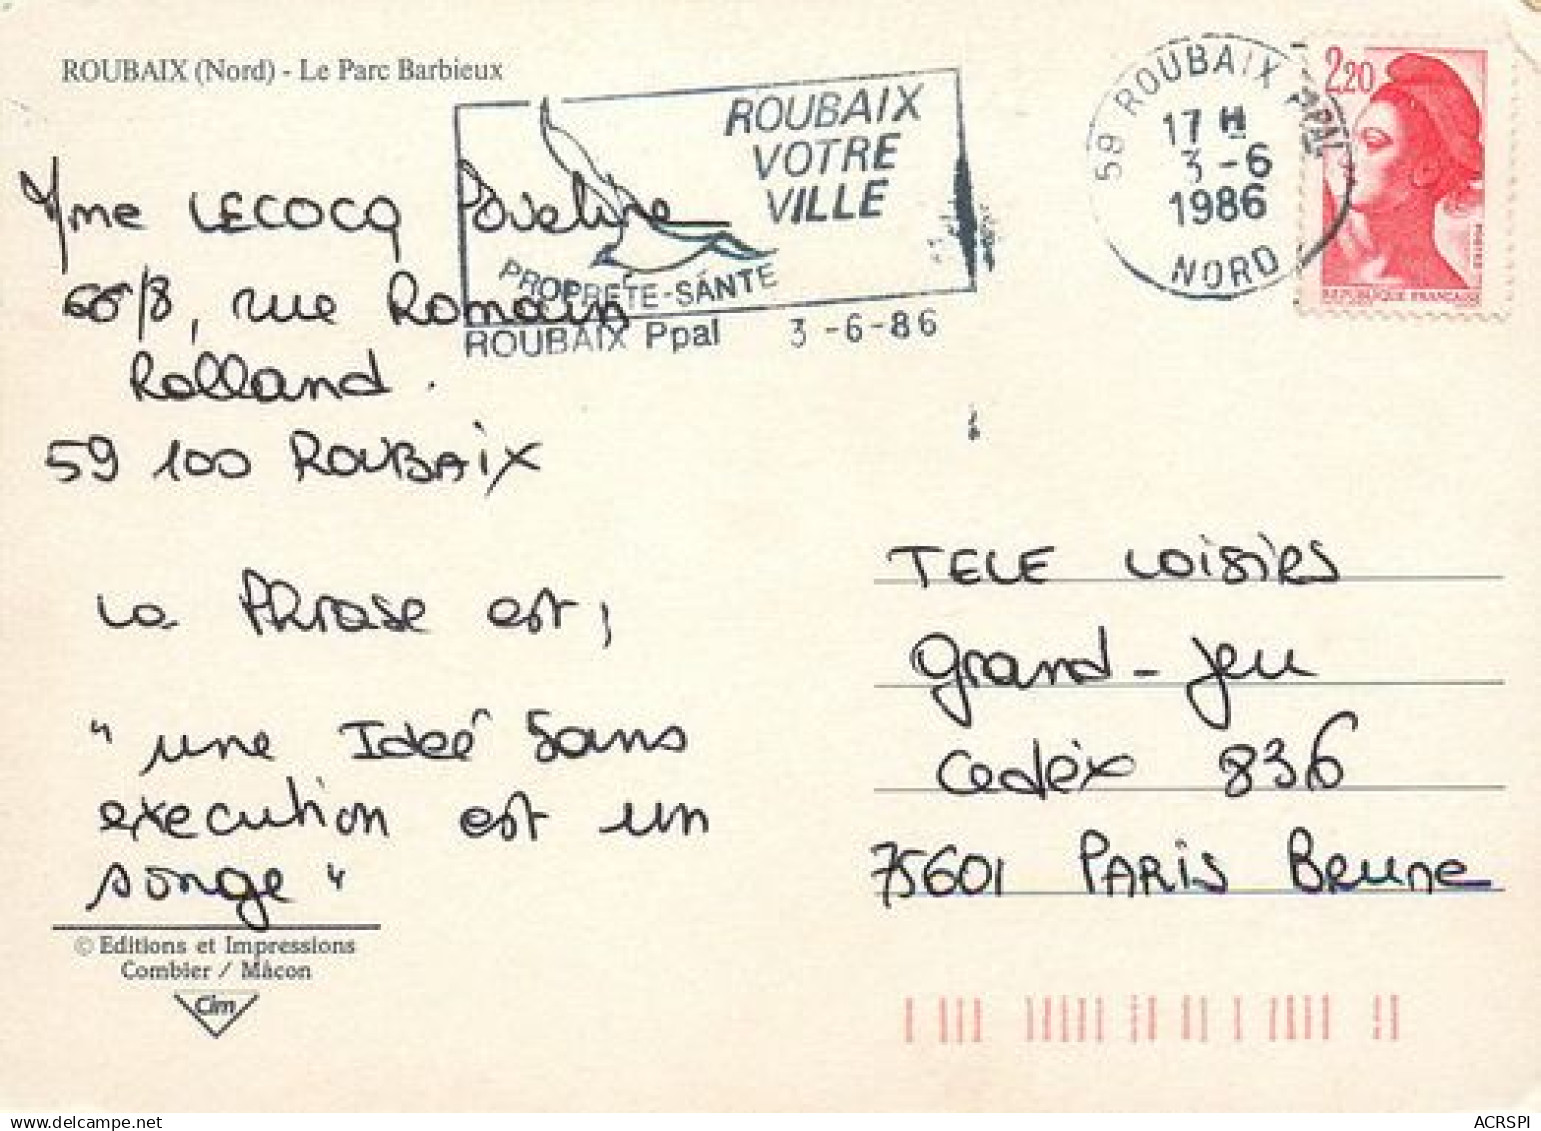 ROUBAIX (Nord) - Le Parc Barbieux
ROUBAIX
VOTRE
VILLE
PROPRETE-SANTE
ROUBAIX Ppal 3-6-86
59 ROUBAIX PPAL
17 H
3-6
1986
NORD
2,20
REPUBLIQUE FRANCAISE
Mme LECOCQ Poveline
66/8, rue Romain
Rolland.
59 100 ROUBAIX
La Phrase est,
"une Ideé sans
execution est un
songe"
TELE LOISIRS
Grand-jeu
Cedex 836
75601 PARIS Brune
© Editions et Impressions
Combier / Mâcon
Cim
ACRSPI